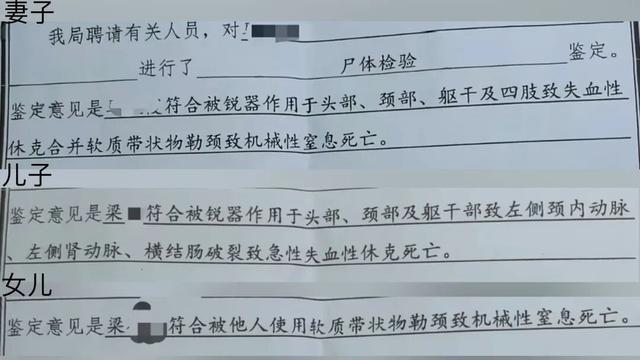 妻子
我局聘请有关人员，对
进行了 尸体检验 鉴定。
鉴定意见是 符合被锐器作用于头部、颈部、躯干及四肢致失血性
休克合并软质带状物勒颈致机械性窒息死亡。
儿子
鉴定意见是梁 符合被锐器作用于头部、颈部及躯干部致左侧颈内动脉
、左侧肾动脉、横结肠破裂致急性失血性休克死亡。
女儿
鉴定意见是梁 符合被他人使用软质带状物勒颈致机械性窒息死亡。